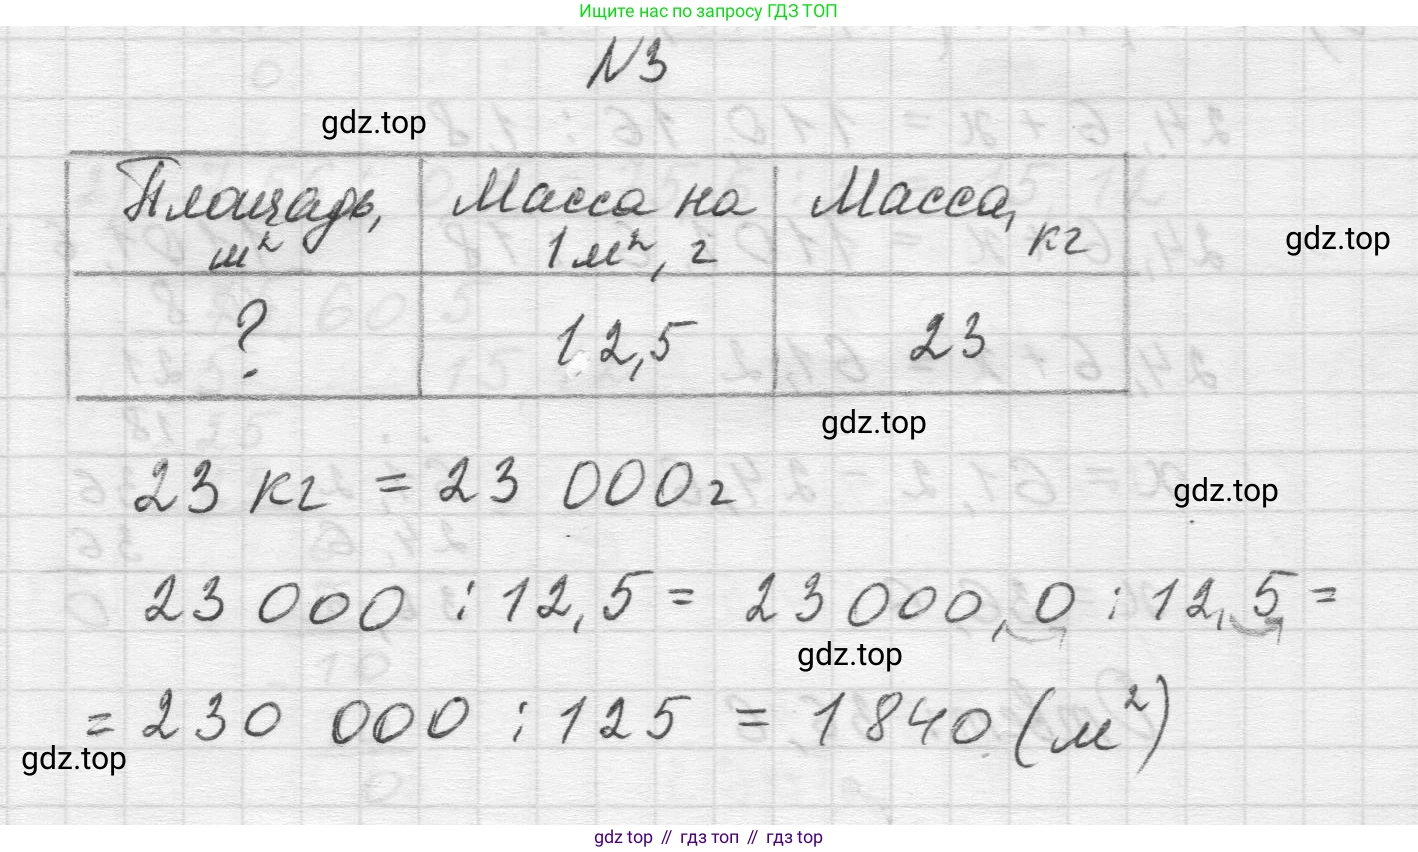 Ищите нас по запросу ГДЗ ТОП
N3
gdz.top
Площадь, м²
Масса на 1 м², г
Масса, кг
gdz.top
?
12,5
23
gdz.top
23 кг = 23 000 г
gdz.top
23 000 : 12,5 = 23 000,0 : 12,5 =
gdz.top
= 230 000 : 125 = 1840 (м²)
gdz.top
gdz top // гдз топ // gdz top